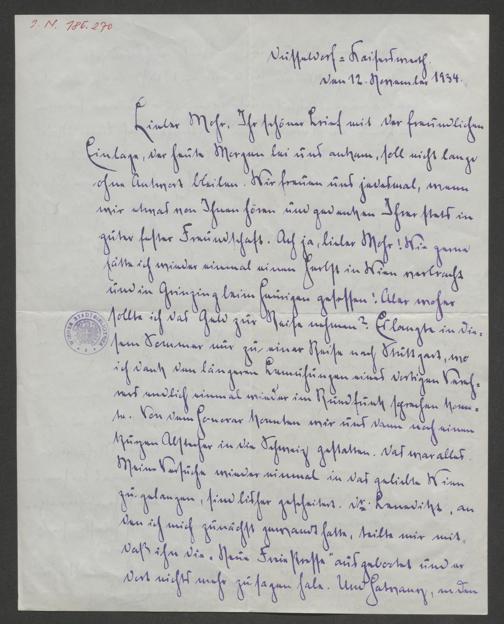 J. N. 186.270
Düsseldorf=Kaiserswerth
den 12. November 1934.
Lieber Mohr, Ihr schöner Brief mit der freundlichen
Einlage, der heute Morgen bei uns ankam, soll nicht lange
ohne Antwort bleiben. Wir freuen uns jedesmal, wenn
wir etwas von Ihnen hören und gedenken Ihrer stets in
guter fester Freundschaft. Ach ja, lieber Mohr! Wie gerne
hätte ich wieder einmal einen Herbst in Wien verbracht
und in Grinzing beim Heurigen gesessen! Aber woher
sollte ich das Geld zur Reise nehmen? Es langte in die-
sem Sommer nur zu einer Reise nach Stuttgart, wo
ich dank den längeren Bemühungen eines dortigen Vereh-
rers endlich einmal wieder im Rundfunk sprechen konn-
te. Von dem Honorar konnten wir uns dann noch einen
kurzen Abstecher in die Schweiz gestatten. Das war alles.
Meine Versuche wieder einmal in das geliebte Wien
zu gelangen, sind bisher gescheitert. Dr. Benedikt, an
den ich mich zunächst gewandt hatte, teilte mir mit,
daß ihn die "Neue Freie Presse" ausgebootet und er
dort nichts mehr zu sagen habe. Und Hatvany, an den